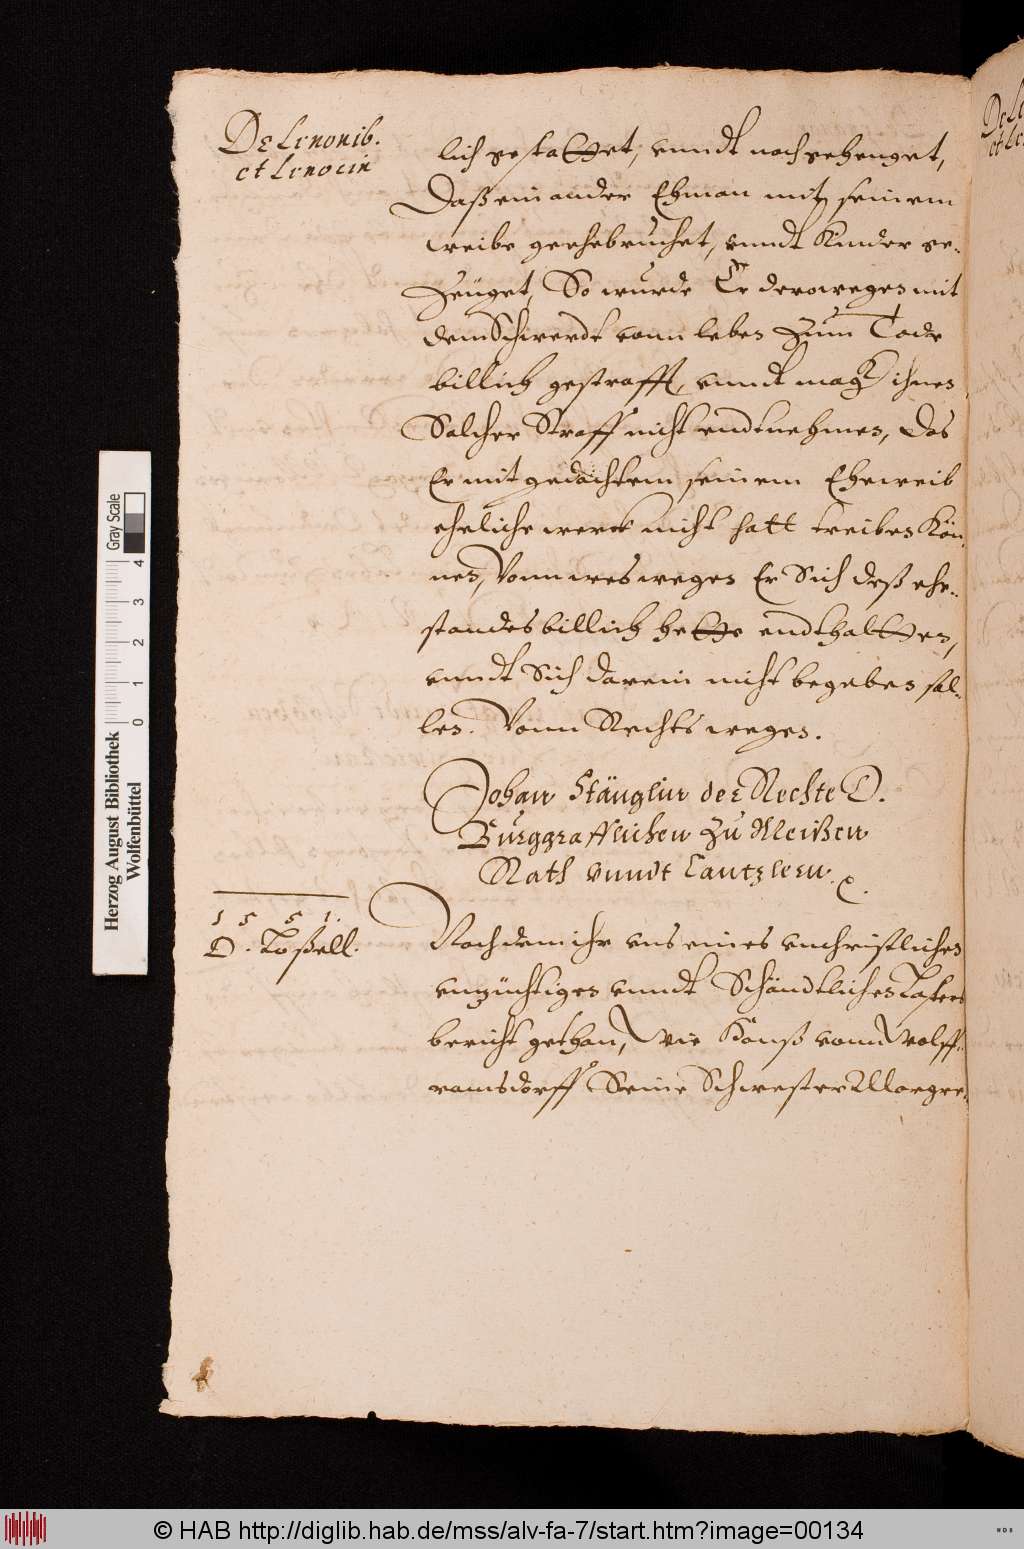 De Lenonib.
et Lenocin
lich gestattet, vnndt nachgehenget,
Daß ein ander Ehman mitt seinem
weibe geehebruchet, vnndt Kinder ge-
Zeüget, So wurde Er derowegen mit
dem Schwerdt vom leben Zum Tode
billich gestrafft, vnndt mag ihnen
Solcher Straff nicht endtnehmen, Das
Er mit gedachtem seinem Eheweib
eheliche werck nicht hatt treiben Kön-
nen, Vonn wes wegen Er Sich deß ehe-
standes billich hette endthaltten,
vnndt Sich darein nicht begeben sol-
len. Vonn Rechts wegen.
Johan Stänglin der Rechte D.
Burggrafflichen Zu Meißen
Rath vnndt Cantzlern.
1551.
D. Loßell.
Nachdem ihr vns eines vnchristlichen
vnzüchtigen vnndt Schändtlichen Lasters
bericht gethan, Wie Hanß vonn Wolff-
ramsdorff Seine Schwester Margre-
Herzog August Bibliothek
Wolfenbüttel
Gray Scale
0 1 2 3 4
© HAB http://diglib.hab.de/mss/alv-fa-7/start.htm?image=00134